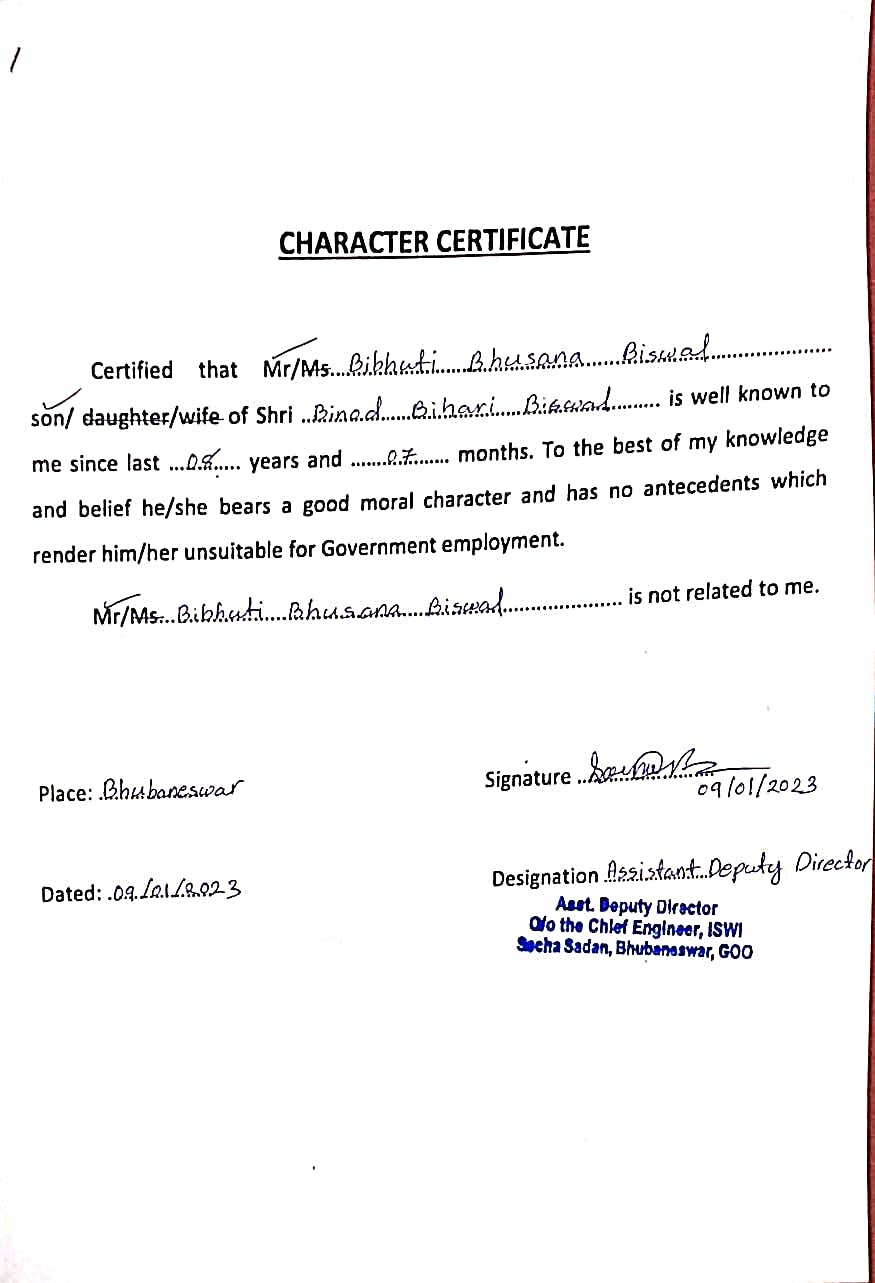 /
CHARACTER CERTIFICATE
Certified that Mr/Ms...Bibhuti......Bhusana......Biswal.....................
son/ daughter/wife of Shri ..Binod......Bihari.....Biswal.......... is well known to
me since last ...08..... years and .......07....... months. To the best of my knowledge
and belief he/she bears a good moral character and has no antecedents which
render him/her unsuitable for Government employment.
Mr/Ms...Bibhuti....Bhusana....Biswal..................... is not related to me.
Place: .Bhubaneswar
Signature ..
09/01/2023
Dated: .09./01/2023
Designation .Assistant..Deputy Director
Asst. Deputy Director
O/o the Chief Engineer, ISWI
Secha Sadan, Bhubaneswar, GOO